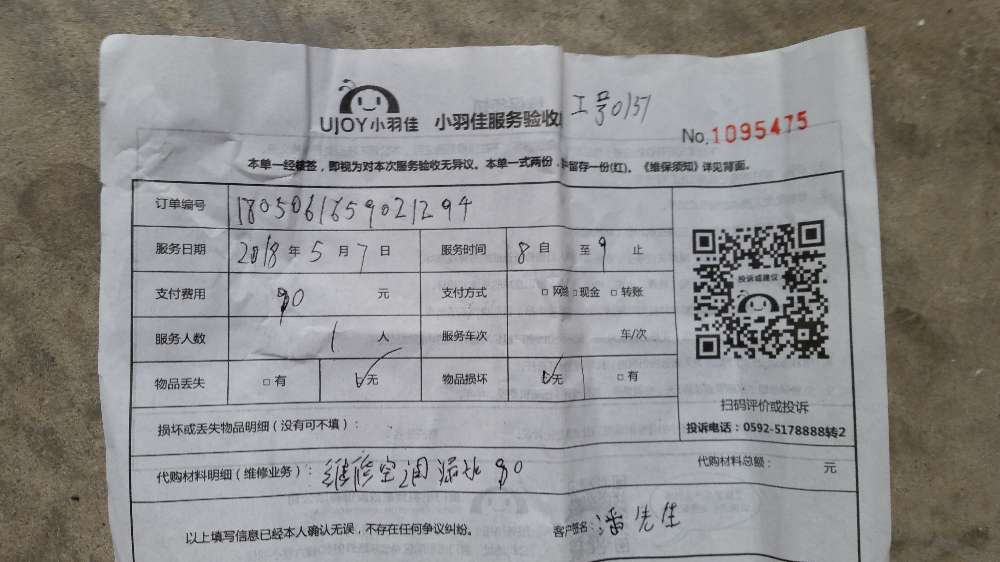 UJOY小羽佳 小羽佳服务验收 工号0151
No.1095475
本单一经核签，即视为对本次服务验收无异议。本单一式两份，留存一份(红)。《维保须知》详见背面。
订单编号 1805061659021294
服务日期 2018年5月7日 服务时间 8自至9止
支付费用 80元 支付方式 □网络 □现金 □转账
服务人数 1人 服务车次 车/次
物品丢失 □有 ☑无 物品损坏 ☑无 □有
投诉或建议
扫码评价或投诉
投诉电话：0592-5178888转2
损坏或丢失物品明细（没有可不填）：
代购材料明细（维修业务）：维修空调漏水 80
代购材料总额： 元
以上填写信息已经本人确认无误，不存在任何争议纠纷。 客户签名：潘先生